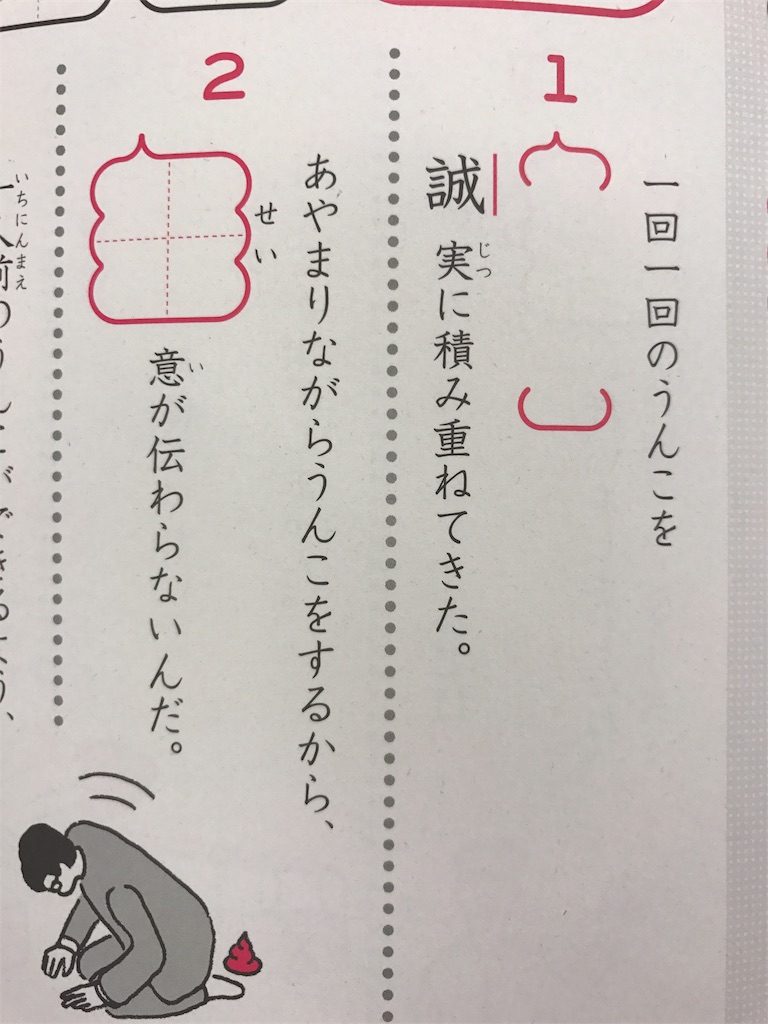 1
一回一回のうんこを
誠実に積み重ねてきた。
じつ
2
あやまりながらうんこをするから、
せい
意が伝わらないんだ。
い
いちにんまえ